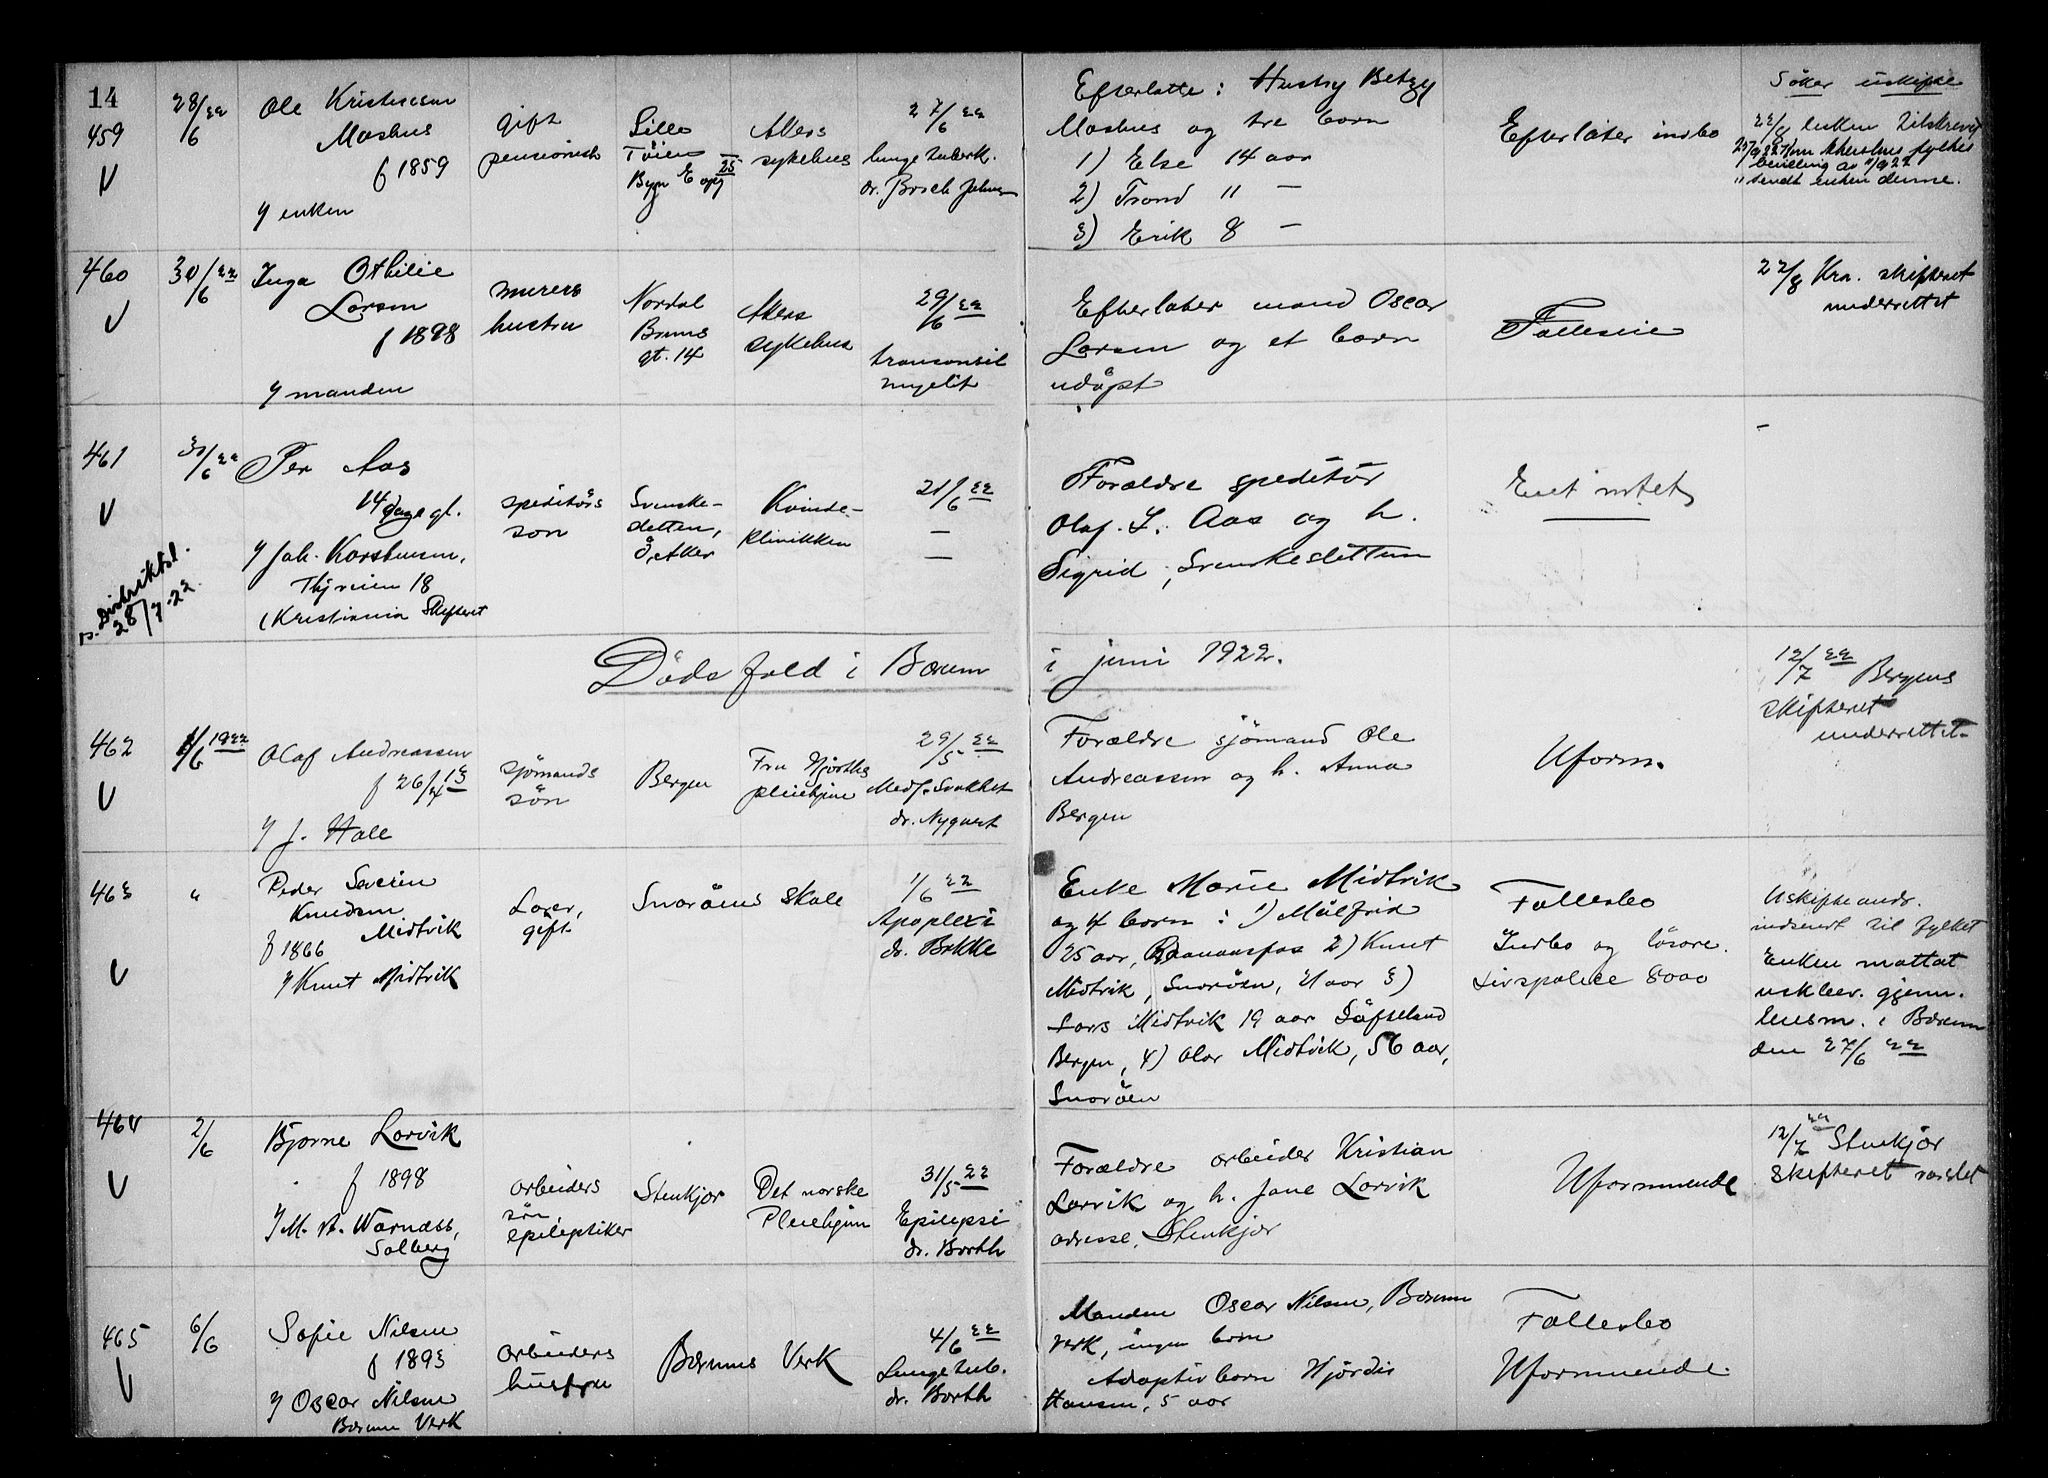 14
459
28/6 22
Ole Kristensen
Moshus
f 1859
v/ enken
gift
pensionist
Lille
Tøien
Byn E opg 25
Akers
sykehus
27/6 22
lungetuberk.
dr. Borch Johns
Efterlatte: Hustru Betzy
Moshus og tre born
1) Else 14 aar
2) Trond 11 —
3) Erik 8 —
Efterlater indbo
Søker uskifte
22/8 enken tilskrevet
Akershus fylkes
bevilling av 11/9 22
" sendt enken denne.
460
30/6 22
Inga Othilie
Larsen
f 1898
v/ manden
murers
hustru
Nordal
Bruns
gt. 14
Akers
sykehus
29/6 22
transversil
myelit
Efterlater mand Oscar
Larsen og et barn
udøpt
Fælleseie
22/8 Kra. skifteret
underrettet
461
30/6 22
Per Aas
14 dage gl.
v/ Joh. Karstensen,
Thjveien 18
(Kristiania Skifteret
s. Distriktsl.
28/7-22.
speditørs
søn
Svenske-
sletten,
Ö. Aker
Kvinde-
klinikken
21/6 22
—
—
Forældre speditør
Olaf. L. Aas og h.
Sigrid, Svenskesletten
Eiet intet
-
Dødsfald i Bærum
i juni 1922.
462
1/6 1922
Olaf Andreassen
f 26/4 13
v/ J. Hale
sjømands
søn
Bergen
Fru Hjorths
pleiehjem
29/5 22
Medf. Svakhet
dr. Nyquist
Forældre sjømand Ole
Andreassen og h. Anna
Bergen
Uform.
12/7 22 Bergens
skifteret
underrettet
463
"
Peder Severin
Knudsen
Midtvik
f 1866
v/ Knut Midtvik
Lærer,
gift
Snarøens skole
1/6 22
Apoplexi
dr. Bakke
Enke Marie Midtvik
og 4 born: 1) Målfrid
25 aar, Raanaasfos 2) Knut
Midtvik, Snarøen, 21 aar 3)
Lars Midtvik 19 aar Søfteland
Bergen, 4) Olav Midtvik, 56 aar,
Snarøen
Fællesbo
Indbo og løsøre.
Livspolice 8000
Uskifteandr.
indsendt til fylket
Enken mottat
uskbev. gjenn.
lensm. i Bærum
den 27/6 22
464
2/6
Bjarne Lorvik
f 1898
v/ M. A. Warnæss,
Solberg
arbeiders
søn,
epileptiker
Stenkjær
Det norske
Pleiehjem
31/5 22
Epilepsi
dr. Barth
Forældre arbeider Kristian
Lorvik og h. Jane Lorvik
adresse, Stenkjær
Uformuende
12/7 22 Stenkjær
Skifteret varslet
465
6/6
Sofie Nilsen
f 1893
v/ Oscar Nilsen
Bærum Verk
arbeiders
hustru
Bærums Verk
4/6 22
Lungetub.
dr. Barth
Manden Oscar Nilsen, Bærum
Verk, ingen born
Adoptivbarn Hjørdis
Hansen, 5 aar
Fællesbo
Uformuende.